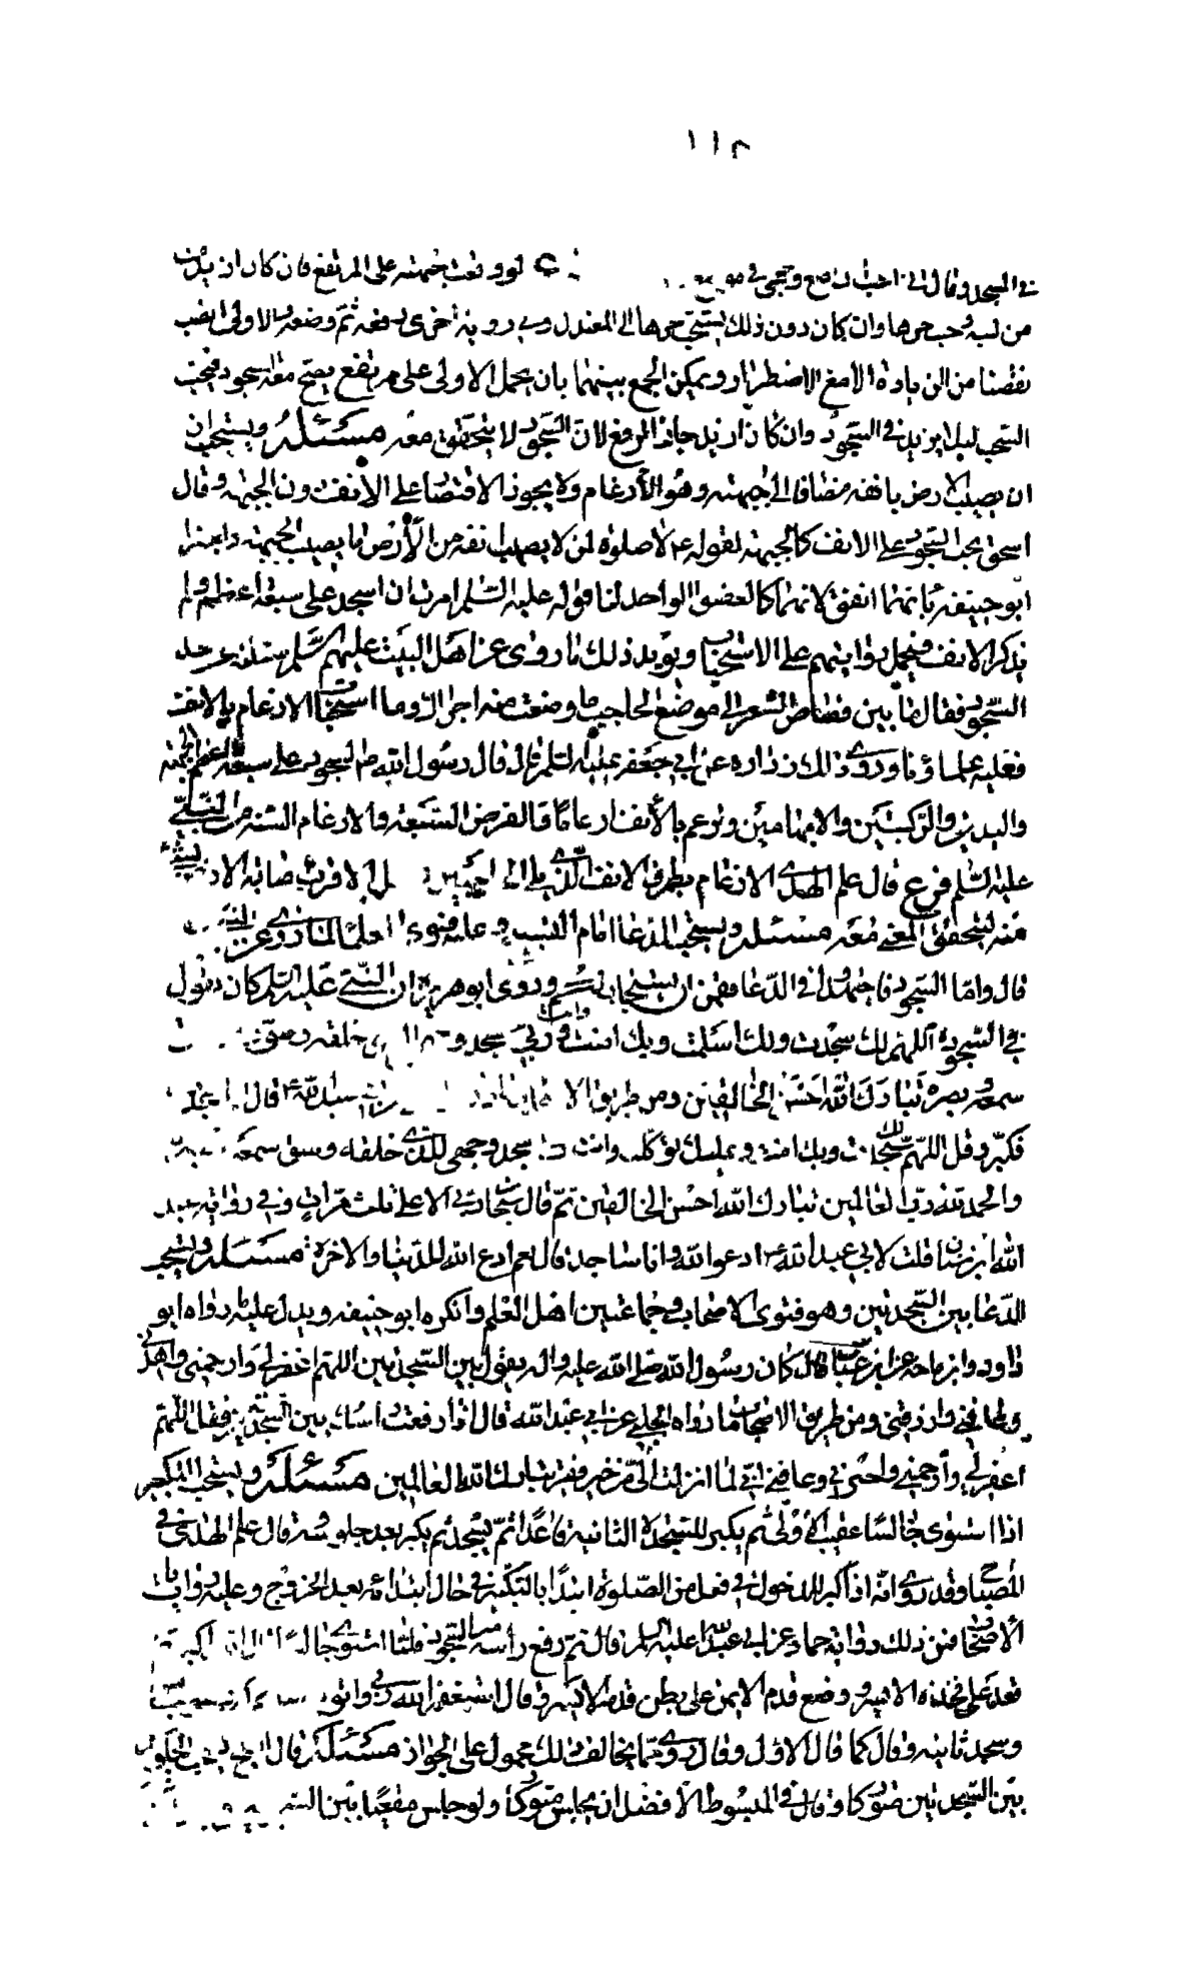 ١١٢
في المسجد وقال اني احب ان اضع وجهي في لو وقعت جبهته على المرتفع فان كان ازيد
من لبنة وجب جرها وان كان دون ذلك يستحب جرها الى المعتدل وفي رواية اخرى يرفعه ثم وضعه والاولى انسب
من الزيادة الا مع الاضطرار ويمكن الجمع بينهما بان يحمل الاولى على مرتفع يصح معه السجود فيجب
السحب ليلا يزيد في السجود وان كان ازيد جاز الرفع لان السجود لا يتحقق معه مسئلة ويستحب ان
ان يصيب الارض بانفه مضافا الى جبهته وهو الارغام ولا يجوز الاقتصار على الانف دون الجبهة وقال
اسحق يجب السجود على الانف كالجبهة لقوله ع لا صلوة لمن لا يصيب انفه من الارض ما يصيب الجبهة
ابو حنيفة بايهما اتفق لانهما كالعضو الواحد لنا قوله عليه السلم امرت ان اسجد على سبعة اعظم ولم
يذكر الانف فيحمل روايتهم على الاستحباب ويؤيد ذلك ما روي عن اهل البيت عليهم السلم سئلته عن حد
السجود فقال ما بين قصاص الشعر الى موضع الحاجب ما وضعت منه اجزاك واما استحباب الارغام بالانف
فعليه علماؤنا وروى ذلك زرارة عن ابي جعفر عليه السلم قال قال رسول الله ص السجود على سبعة اعظم الجبهة
واليدين والركبتين والابهامين وترغم بالانف ارغاما فالفرض السبعة والارغام السنة من النبي
عليه السلم فرع قال علم الهدى الارغام بطرف الانف الذي يلي الحاجبين بل الاقرب اصابة الارض بشيء
منه ليتحقق المعنى معه مسئلة ويستحب الدعا امام التسبيح وعليه فتوى علمائنا روي عن النبي
قال واما السجود فاجتهدوا في الدعا فقمن ان يستجاب لكم وروى ابو هريرة ان النبي عليه السلم كان يقول
في السجود اللهم لك سجدت ولك اسلمت وبك امنت وانت ربي سجد خلقه وشق
سمعه وبصره تبارك الله احسن الخالقين ومن طريق الا ابي عبد الله ع قال اذا سجدت
فكبر وقل اللهم لك سجدت وبك امنت وعليك توكلت وانت ربي سجد وجهي للذي خلقه وشق سمعه وبصره
والحمد لله رب العالمين تبارك الله احسن الخالقين ثم قال سبحان ربي الاعلى ثلث مرات وفي رواية عبد
الله ابن سنان قلت لابي عبد الله ع ادعو الله وانا ساجد قال نعم ادع الله للدنيا والاخرة مسئلة ويستحب
الدعا بين السجدتين وهو فتوى الاصحاب وجماعة من اهل العلم وانكره ابو حنيفة ويدل عليه ما رواه ابو
داود وابن ماجة عن ابن عباس قال كان رسول الله صلى الله عليه واله يقول بين السجدتين اللهم اغفر لي وارحمني واهدني
وعافني وارزقني ومن طريق الاصحاب ما رواه الحلبي عن ابي عبد الله قال اذا رفعت راسك بين السجدتين فقل اللهم
اغفر لي وارحمني واجبرني وعافني اني لما انزلت الي من خير فقير تبارك الله رب العالمين مسئلة ويستحب التكبير
اذا استوى جالسا عقيب الاولى ثم يكبر للسجدة الثانية قاعدا ثم يسجد ثم يكبر بعد جلوسه قال علم الهدى في
المصباح وقد روي انه اذا كبر للدخول في فعل من الصلوة ابتدا بالتكبير في حال ابتدائه بعد الخروج وعليه روايات
الاصحاب فمن ذلك رواية حماد عن ابي عبد الله عليه السلم قال ثم رفع راسه من السجود فلما استوى جالسا قال الله اكبر ثم
قعد على فخذه الايسر ووضع قدم الايمن على بطن قدمه الايسر وقال استغفر الله ربي واتوب
وسجد ثانيه وقال كما قال الاول وقال روي ما يخالف ذلك محمول على الجواز مسئلة قال الشيخ يجب الجلوس
بين السجدتين متوركا وقال في المبسوط الافضل ان يجلس متوركا ولو جلس مقعيا بين